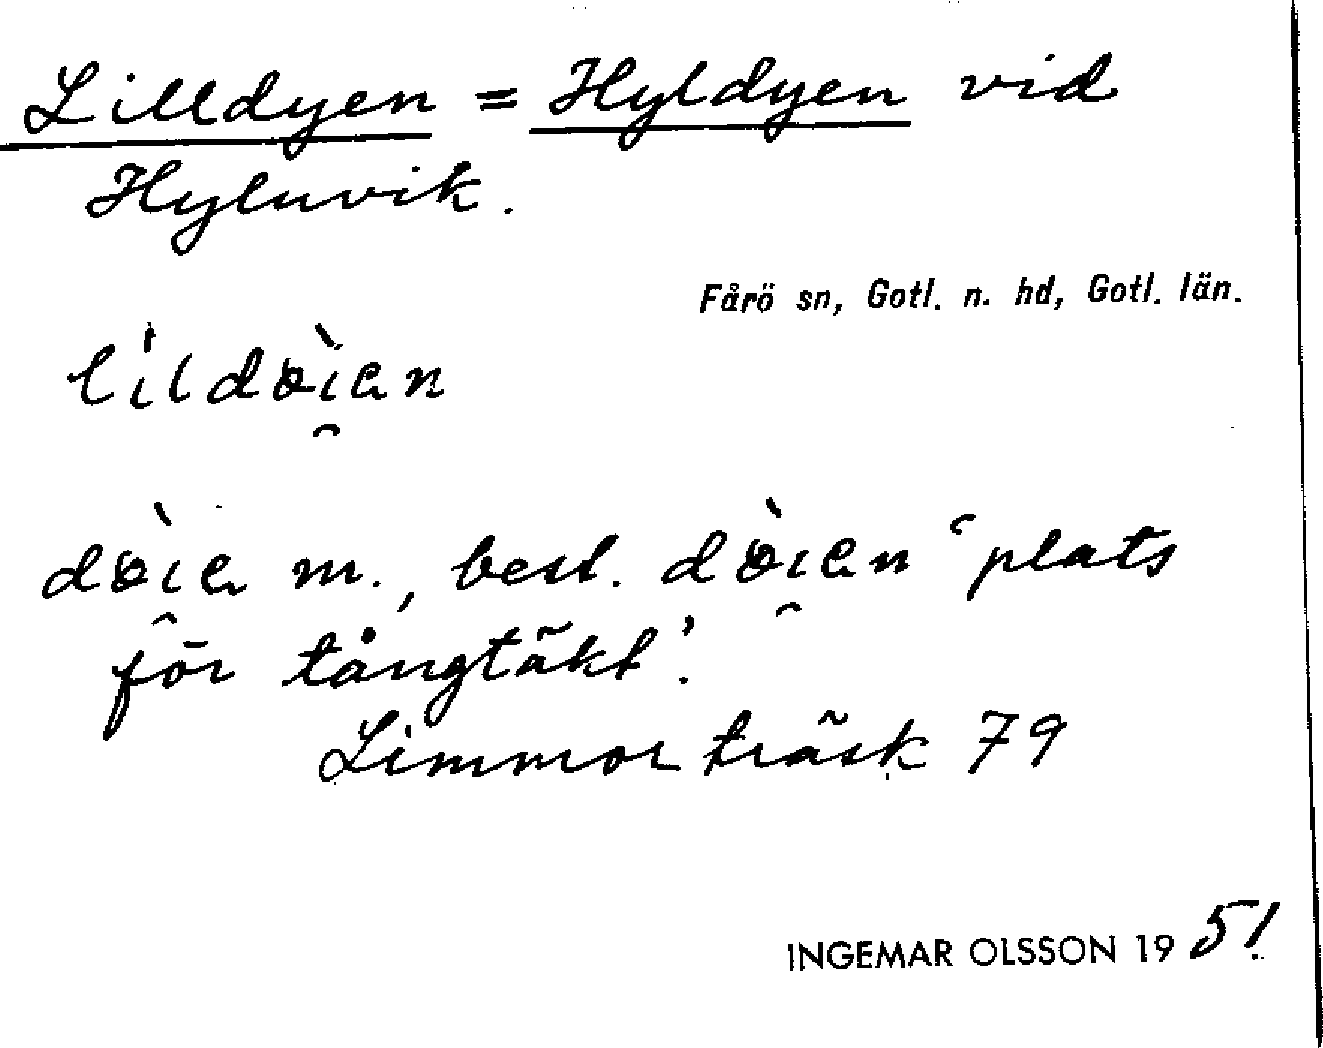 Lilldyen = Hyldyen vid
Hyluvik.
Fårö sn, Gotl. n. hd, Gotl. län.
lildòi̯en
dòi̯e m., best. dòi̯en 'plats
för tångtäkt'.
Limmor träsk 79
INGEMAR OLSSON 1951